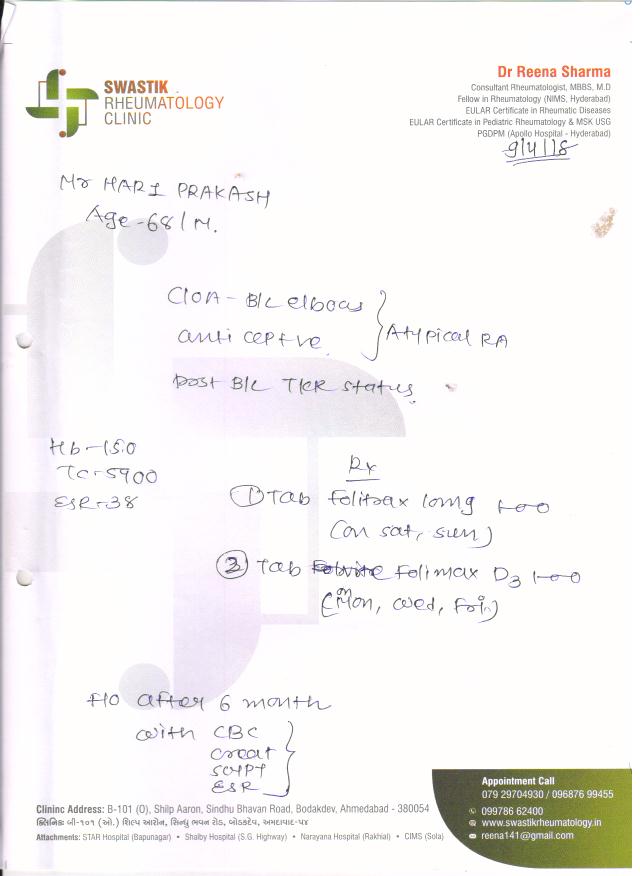 SWASTIK
RHEUMATOLOGY
CLINIC
Dr Reena Sharma
Consultant Rheumatologist, MBBS, M.D
Fellow in Rheumatology (NIMS, Hyderabad)
EULAR Certificate in Rheumatic Diseases
EULAR Certificate in Pediatric Rheumatology & MSK USG
PGDPM (Apollo Hospital - Hyderabad)
9/4/18
Mr HARI PRAKASH
Age - 68 / M.
B/L elbows
anti ccp +ve
Atypical RA
post B/L TKR status.
Hb - 15.0
TC - 5900
ESR - 38
Rx
① Tab Folitrax 10mg 1-0-0
(on sat, sun)
② Tab Folimax D3 1-0-0
(on Mon, Wed, Fri)
F/O after 6 month
with CBC
creat
SGPT
ESR
Appointment Call
079 29704930 / 096876 99455
099786 62400
www.swastikrheumatology.in
reena141@gmail.com
Clininc Address: B-101 (O), Shilp Aaron, Sindhu Bhavan Road, Bodakdev, Ahmedabad - 380054
ક્લિનિક: બી-૧૦૧ (ઓ.) શિલ્પ આરોન, સિન્ધુ ભવન રોડ, બોડકદેવ, અમદાવાદ-૫૪
Attachments: STAR Hospital (Bapunagar) • Shalby Hospital (S.G. Highway) • Narayana Hospital (Rakhial) • CIMS (Sola)